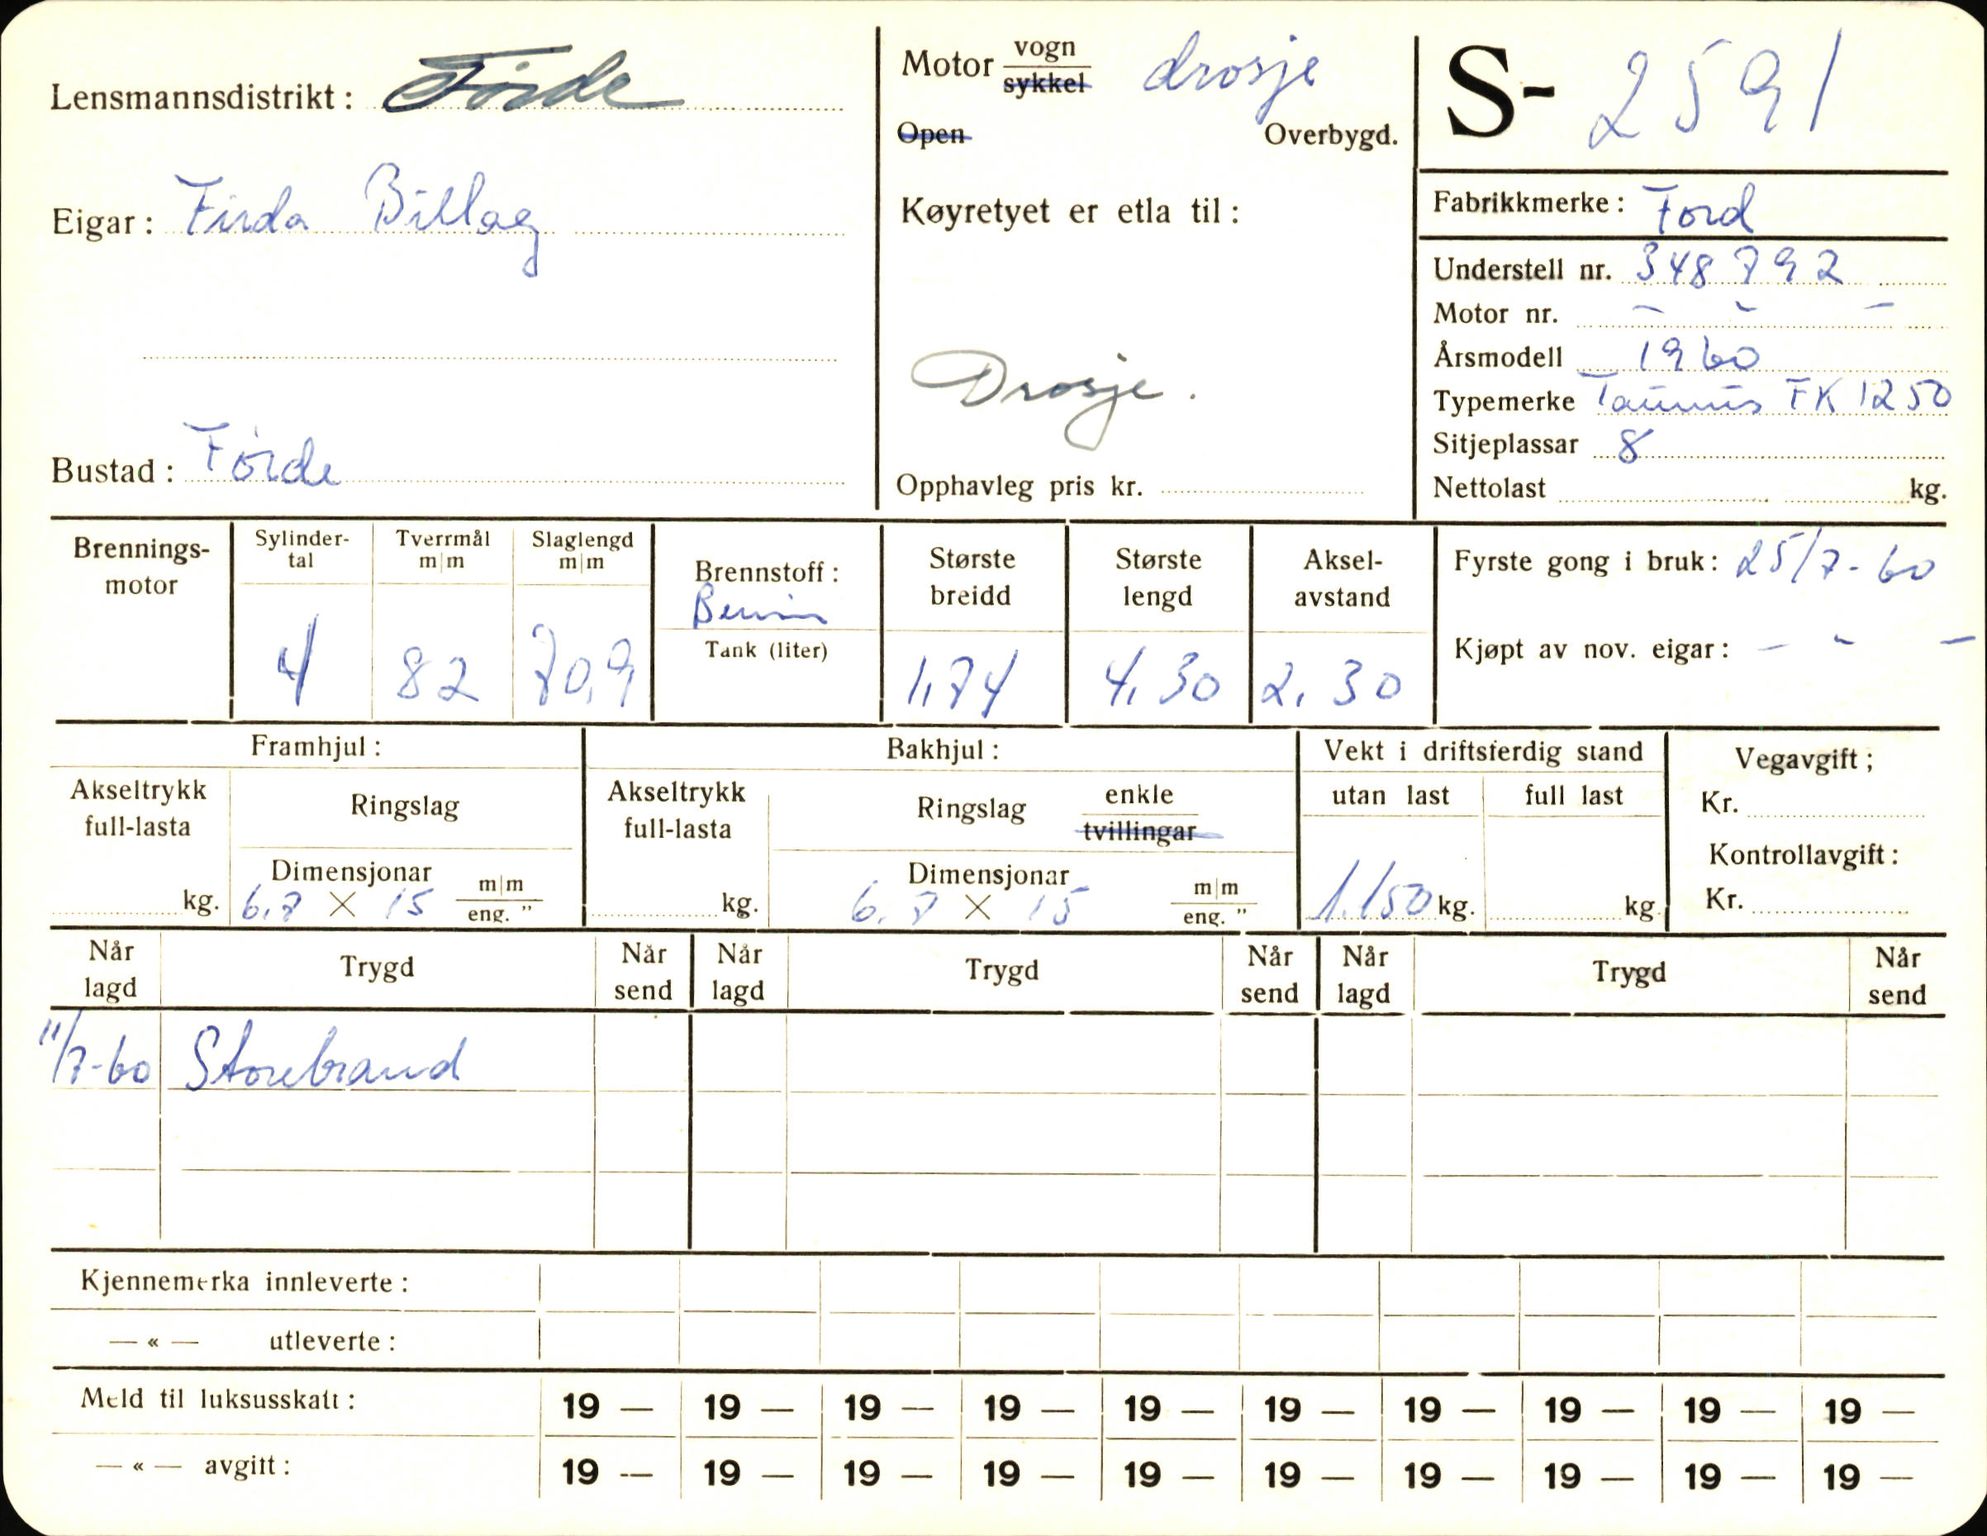 Lensmannsdistrikt: Førde
Eigar: Firda Billag
Bustad: Førde
Motor vogn drosje
sykkel
Open Overbygd.
Køyretyet er etla til:
Drosje.
Opphavleg pris kr.
S- 2591
Fabrikkmerke: Ford
Understell nr. 348792
Motor nr. — — —
Årsmodell 1960
Typemerke Taunus FK 1250
Sitjeplassar 8
Nettolast kg.
Brennings-
motor
Sylinder-
tal
4
Tverrmål
m|m
82
Slaglengd
m|m
70,9
Brennstoff:
Bensin
Tank (liter)
Største
breidd
1,74
Største
lengd
4,30
Aksel-
avstand
2,30
Fyrste gong i bruk: 25/7-60
Kjøpt av nov. eigar: — — —
Framhjul:
Akseltrykk
full-lasta
kg.
Ringslag
Dimensjonar
6,7 X 15 m|m
eng. "
Bakhjul:
Akseltrykk
full-lasta
kg.
Ringslag enkle
tvillingar
Dimensjonar
6,7 X 15 m|m
eng. "
Vekt i driftsferdig stand
utan last full last
1.150 kg. kg.
Vegavgift;
Kr.
Kontrollavgift:
Kr.
Når
lagd
Trygd
Når
send
Når
lagd
Trygd
Når
send
Når
lagd
Trygd
Når
send
11/7-60 Storebrand
Kjennemerka innleverte:
— « — utleverte:
Meld til luksusskatt: 19 — 19 — 19 — 19 — 19 — 19 — 19 — 19 — 19 — 19 —
— « — avgift: 19 — 19 — 19 — 19 — 19 — 19 — 19 — 19 — 19 — 19 —